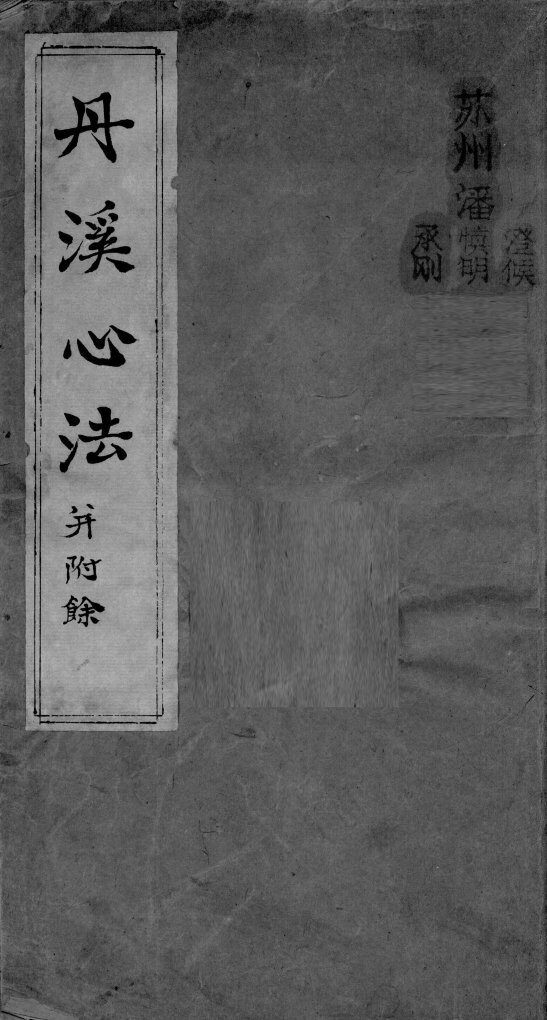 苏州潘
澄候
慎明
承刚
丹溪心法并附餘